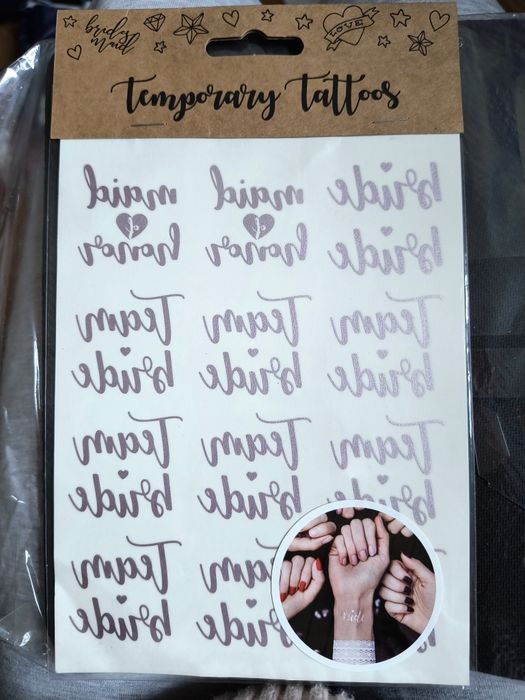 bride
maid
LOVE
temporary tattoos
maid maid bride
of of
honor honor bride
Team Team Team
bride bride bride
Team Team Team
bride bride bride
Team Team
bride bride
bride